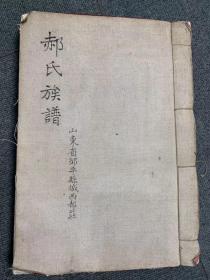 郝氏族譜
山東省鄒平縣城西郝莊